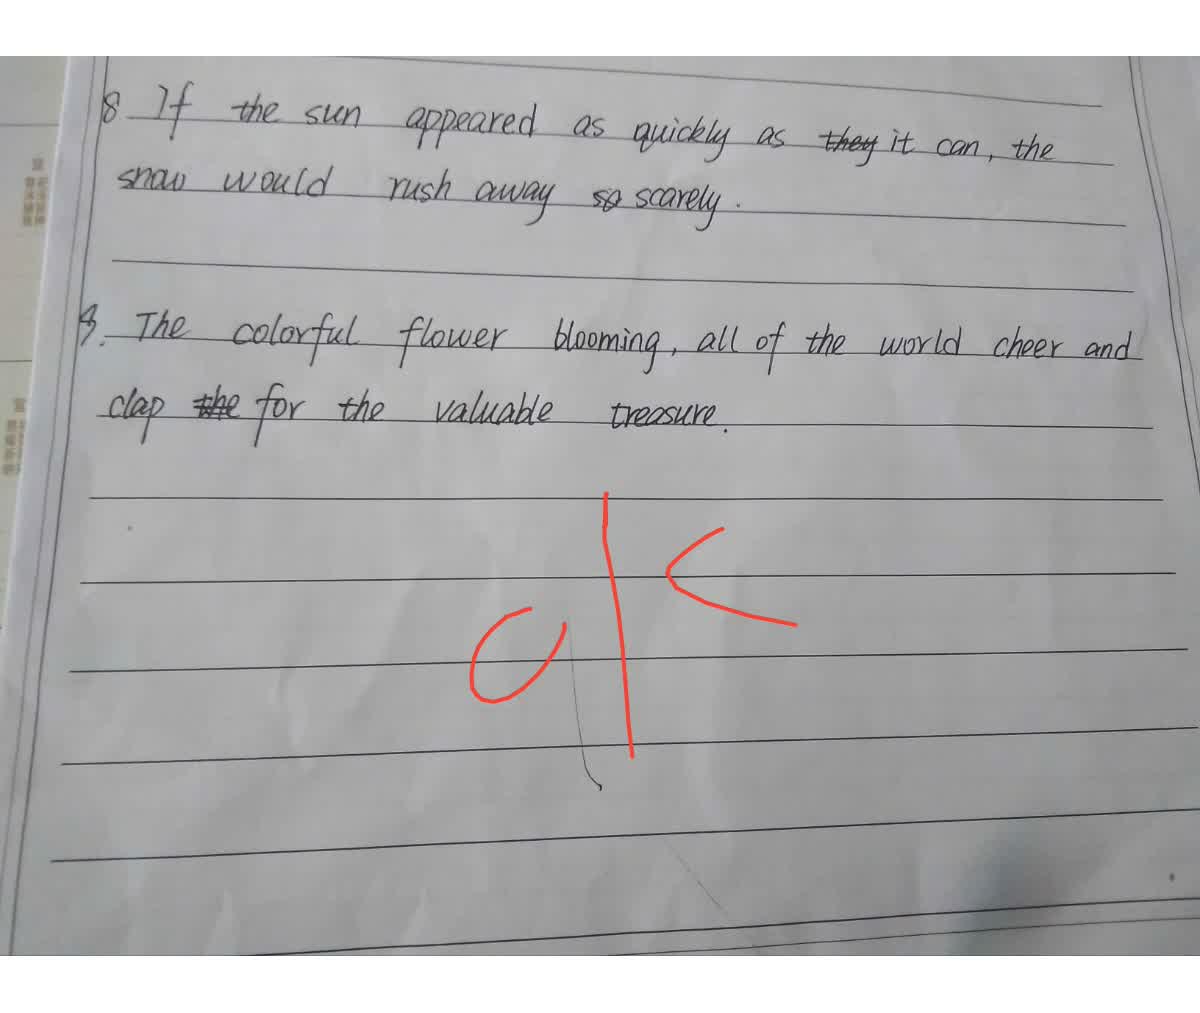 8 If the sun appeared as quickly as they it can, the
snow would rush away so scarely.
9. The colorful flower blooming, all of the world cheer and
clap the for the valuable treasure.
ok